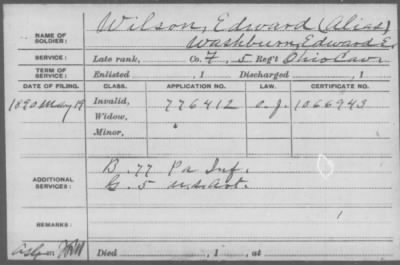 NAME OF SOLDIER: Wilson, Edward (Alias)
Washburn, Edward E.
SERVICE: Late rank, Co. 7, 5 Reg't Ohio Cav.
TERM OF SERVICE: Enlisted , 1 Discharged , 1
DATE OF FILING. CLASS. APPLICATION NO. LAW. CERTIFICATE NO.
1890 May 19 Invalid, 776412 1066943
Widow,
Minor,
ADDITIONAL SERVICES: B. 77 Pa Inf.
G. 5 Art.
REMARKS:
Died , 1 , at